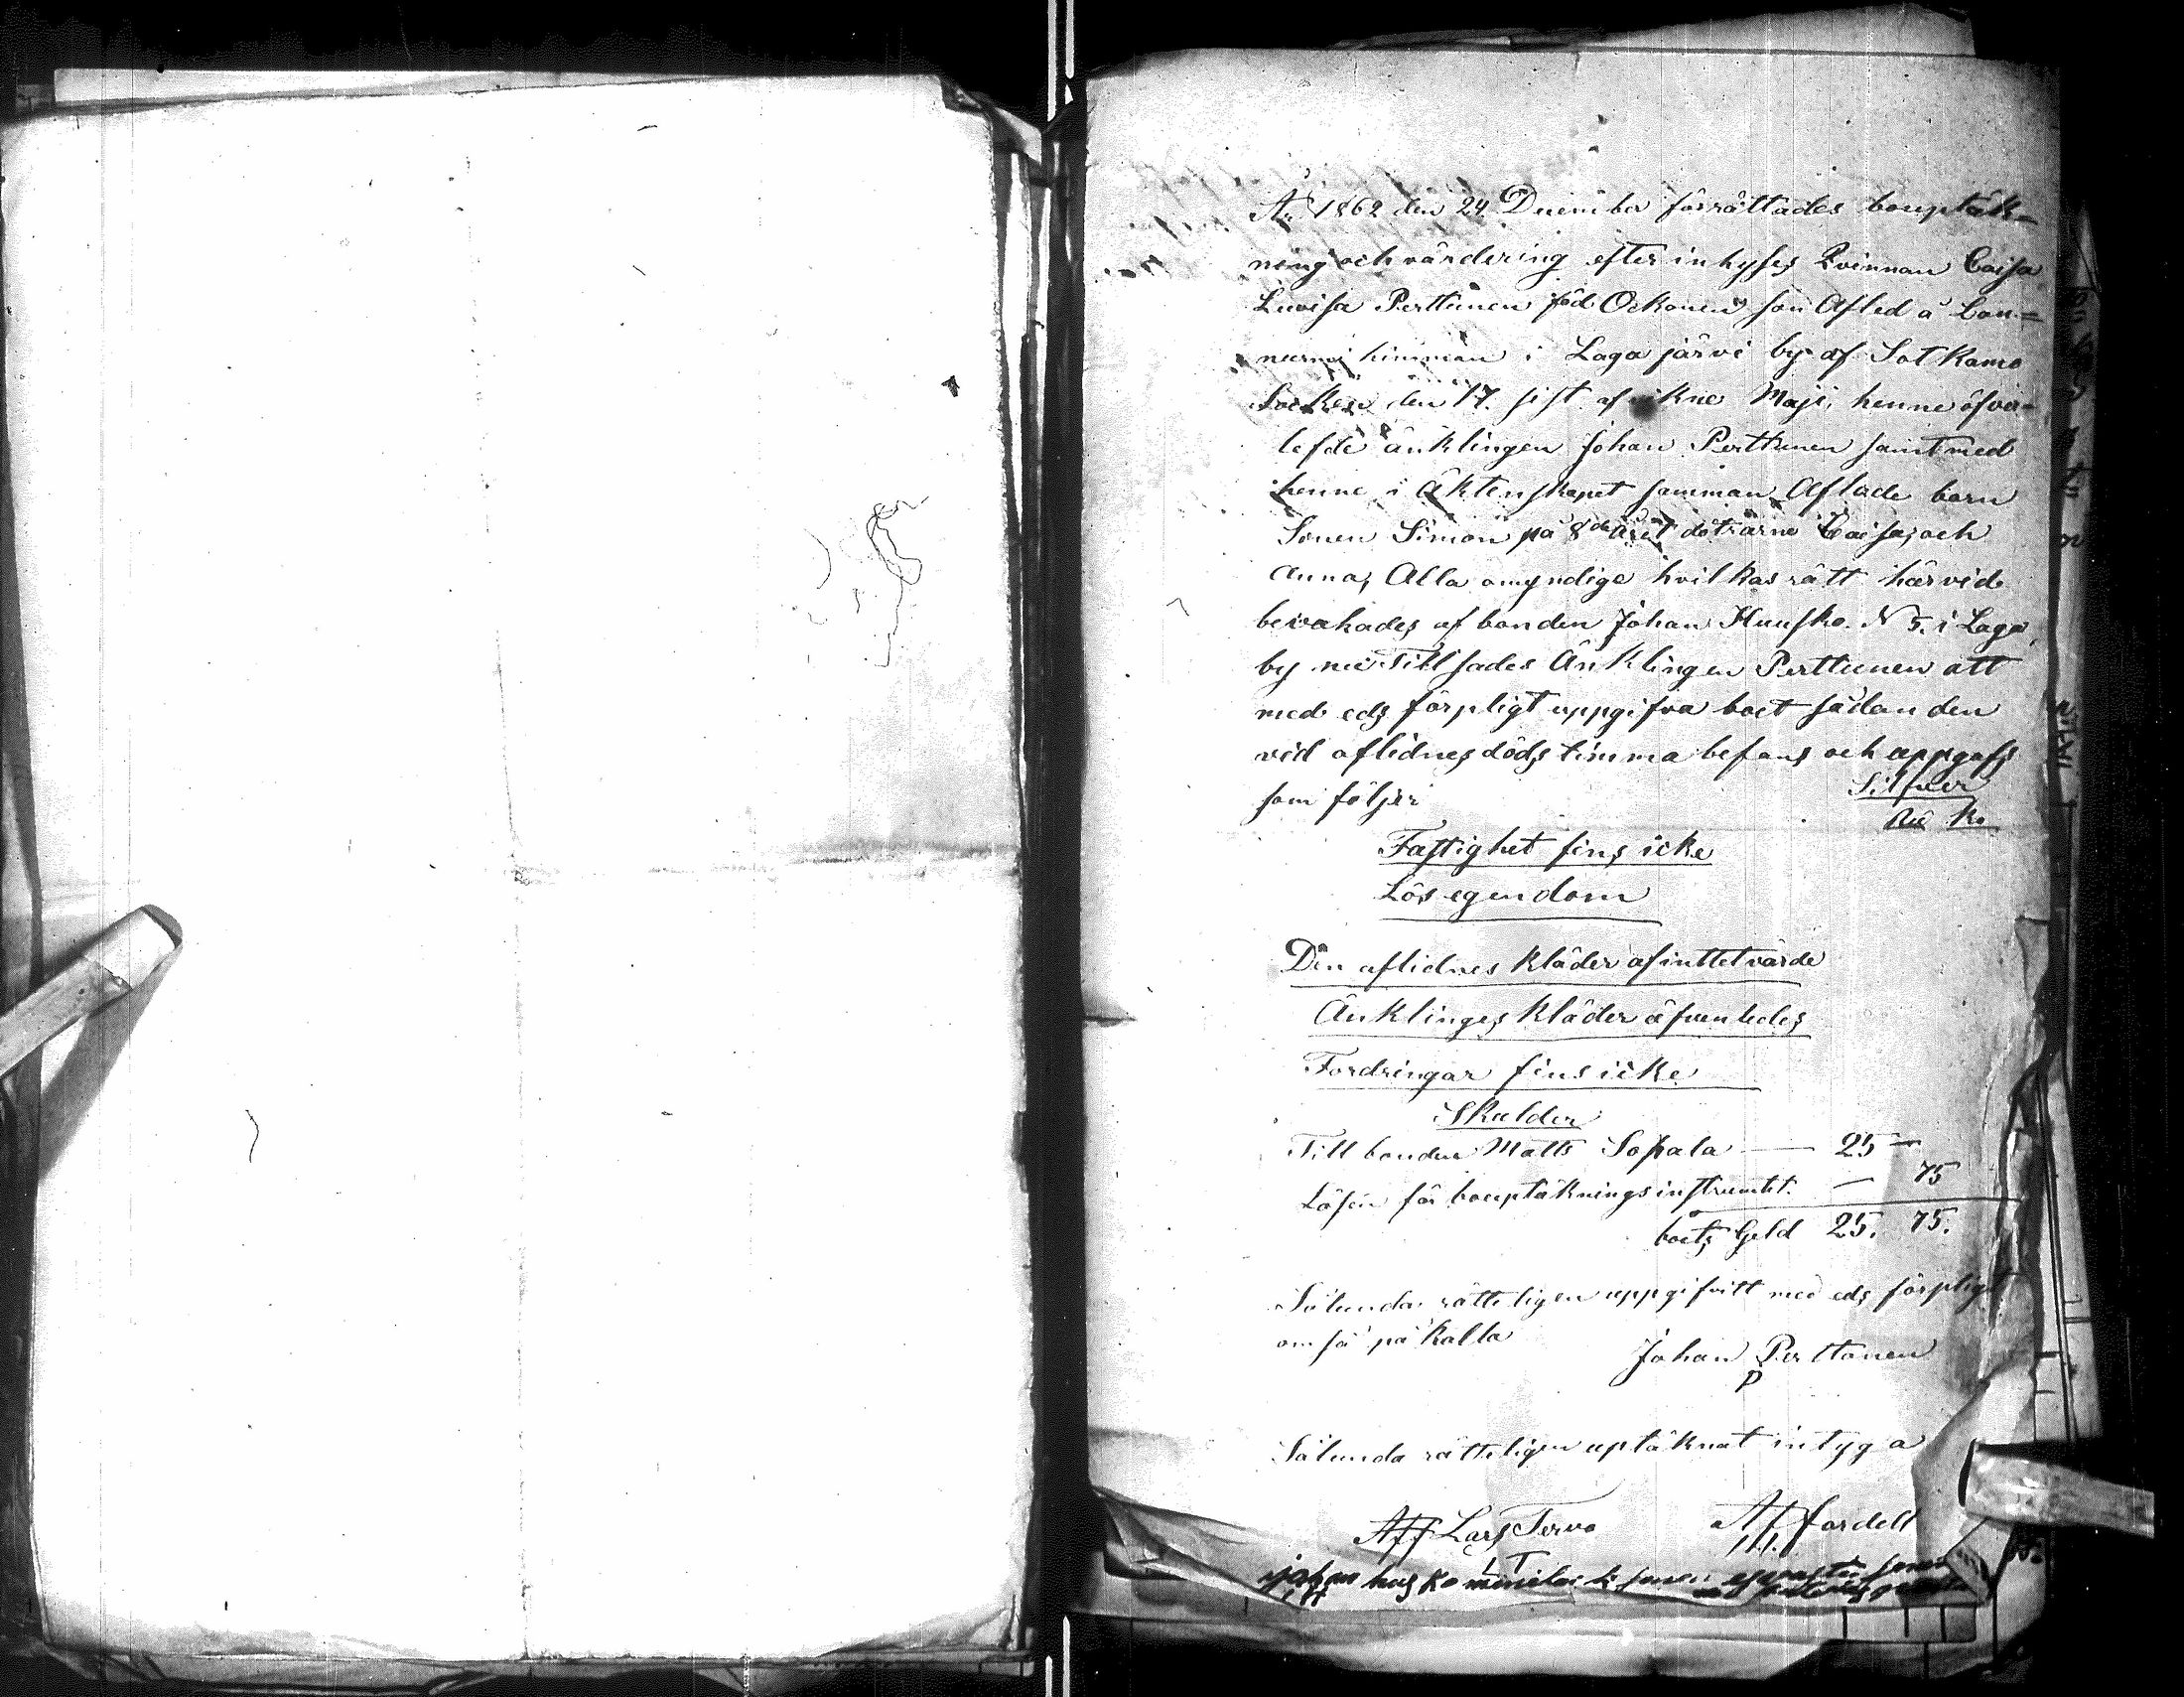 År 1862 den 24 December förrättades bouptäk=
ning och värdering efter inhyses Qvinnan Caisa
Lovisa Perttunen föd Ockonen som Afled å Lou=
nurmi himman i Laga järvi by af Sotkamo
Socken den 17. sist. afvikne Maji, henne öfver=
lefde änklingen Johan Perttunen samt med
henne i Äktenskapet samman Aflade barn
Sonen Simon på 8de Året dötrarne Caisa, och
Anna, Alla omyndiga hvilkas rätt härvid
bevakades af bonden Johan Huusko N 5. i Laga
by Tillsades Änklingen Perttunen att
med eds förpligt uppgifva boet sådan den
vid aflidnes döds timma befans och uppgafs
som följer
Silfver
Ru Ko
Fastighet fins icke
Lös egendom
Den aflidnes kläder af inttet värde
Änklinges kläder äfvenledes
Fordringar fins icke
Skulder
Till bonden Matts Sopala — 25 —
Lösen för bouptäkningsinstrumtet. — 75
boets Geld 25. 75.
Sålunda rätteligen uppgifvitt med eds förpligt
om så på kalla
Johan Perttonen
P
Sålunda rätteligen uptäknat intyga
Lars Tervo
LT
johan husko